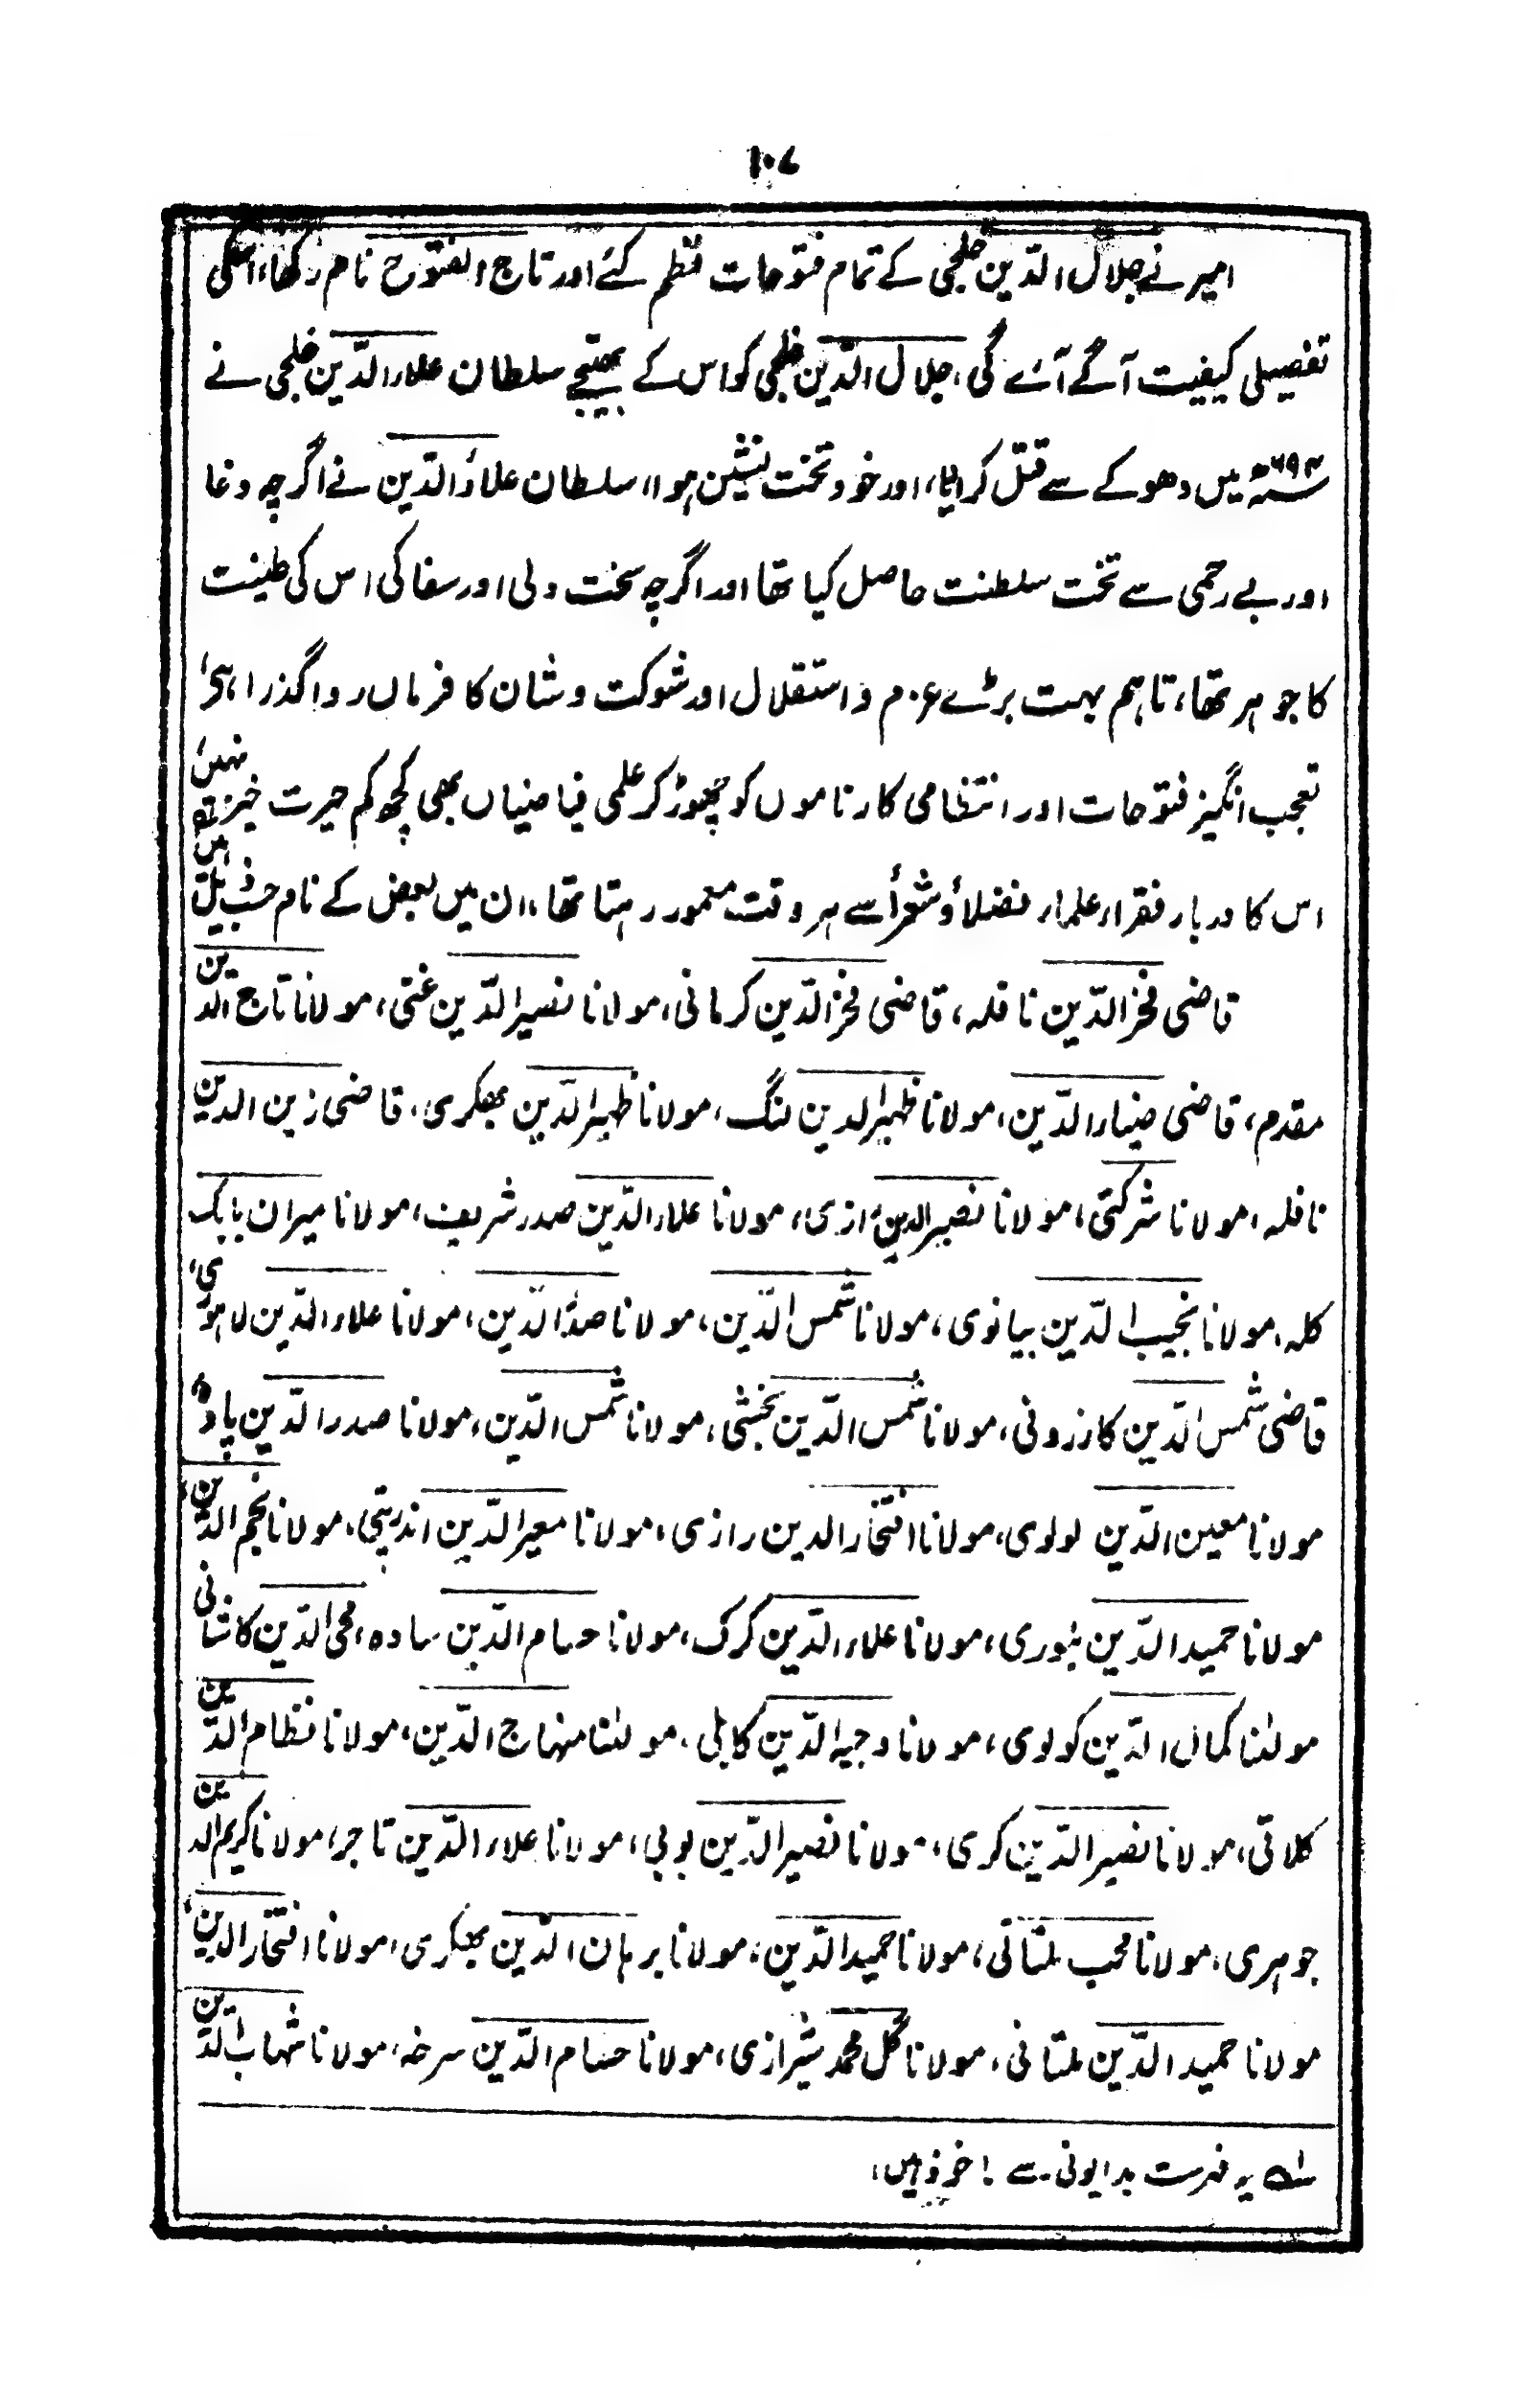 ۱۰۷
امیر نے جلال الدّین خلجی کے تمام فتوحات نظم کئے اور تاج الفتوح نام رکھا، اسکی
تفصیلی کیفیت آگے آے گی، جلال الدّین خلجی کو اس کے بھتیجے سلطان علاء الدّین خلجی نے
۶۹۴ھ میں دھوکے سے قتل کرا لیا، اور خود تخت نشین ہوا، سلطان علاؤ الدّین نے اگرچہ دغا
اور بے رحمی سے تخت سلطنت حاصل کیا تھا اور اگرچہ سخت دلی اور سفاکی اس کی طینت
کا جوہر تھا، تاہم بہت بڑے عزم و استقلال اور شوکت و شان کا فرماں روا گذرا ہے،
تعجب انگیز فتوحات اور انتظامی کارناموں کو چھوڑ کر علمی فیاضیاں بھی کچھ کم حیرت خیز نہیں،
اس کا دربار فقراء علماء فضلاؤ شعرأ سے ہر وقت معمور رہتا تھا، ان میں بعض کے نام حسب ذیل ہیں
قاضی فخر الدّین ناقلہ، قاضی فخر الدّین کرمانی، مولانا نصیر الدّین غنی، مولانا تاج الدّین
مقدم، قاضی ضیاء الدّین، مولانا ظہیر الدین لنگ، مولانا ظہیر الدّین بھکری، قاضی زین الدین
ناقلہ، مولانا شرکتی، مولانا نصیر الدین رازی، مولانا علاء الدّین صدر شریف، مولانا میران بابک
کلہ، مولانا نجیب الدّین بیانوی، مولانا شمس الدّین، مولانا صدر الدّین، مولانا علاء الدّین لاہوری،
قاضی شمس الدّین کازرونی، مولانا شمس الدّین بخشی، مولانا شمس الدّین، مولانا صدر الدّین پاوہ،
مولانا معین الدّین لولوی، مولانا افتخار الدین رازی، مولانا معیر الدّین اندرپتی، مولانا نجم الدّین،
مولانا حمید الدّین بنوری، مولانا علاء الدّین کرک، مولانا حسام الدّین سادہ، محی الدّین کاشانی
مولٰنا کمال الدّین کولوی، مولانا وجیہ الدّین کابلی، مولٰنا منہاج الدّین، مولانا نظام الدّین
کلاتی، مولانا نصیر الدّین کری، مولانا نصیر الدّین بوبی، مولانا علاء الدّین تاجر، مولانا کریم الدین
جوہری، مولانا محب ملتانی، مولانا حمید الدّین، مولانا برہان الدّین بھکری، مولانا افتخار الدین،
مولانا حمید الدّین ملتانی، مولانا گل محمد شیرازی، مولانا حسام الدّین سرخہ، مولانا شہاب الدّین
لہ یہ فہرست بدایونی سے ماخوذ ہیں،